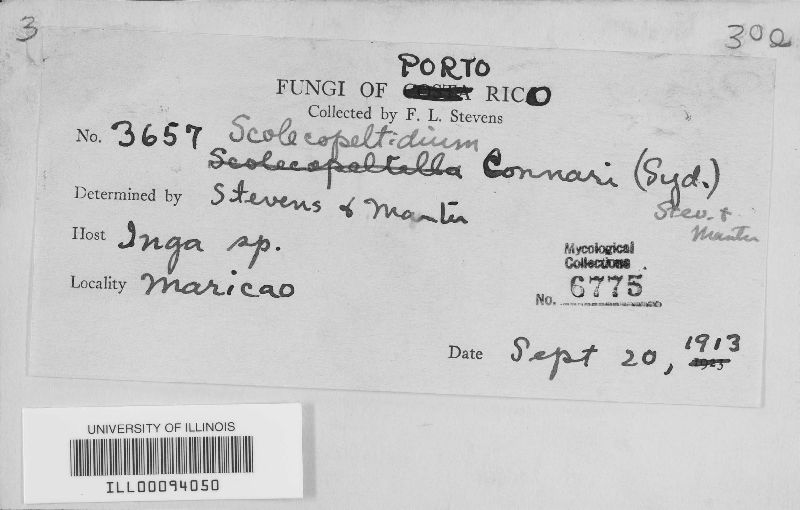 3
300
PORTO
FUNGI OF COSTA RICO
Collected by F. L. Stevens
No. 3657 Scolecopeltidium
Scolecopeltella Connari (Syd.)
Stev. &
Manter
Determined by Stevens & Manter
Host Inga sp.
Mycological
Collections
Locality Maricao
No. 6775
Date Sept 20, 1913
1923
UNIVERSITY OF ILLINOIS
ILL00094050